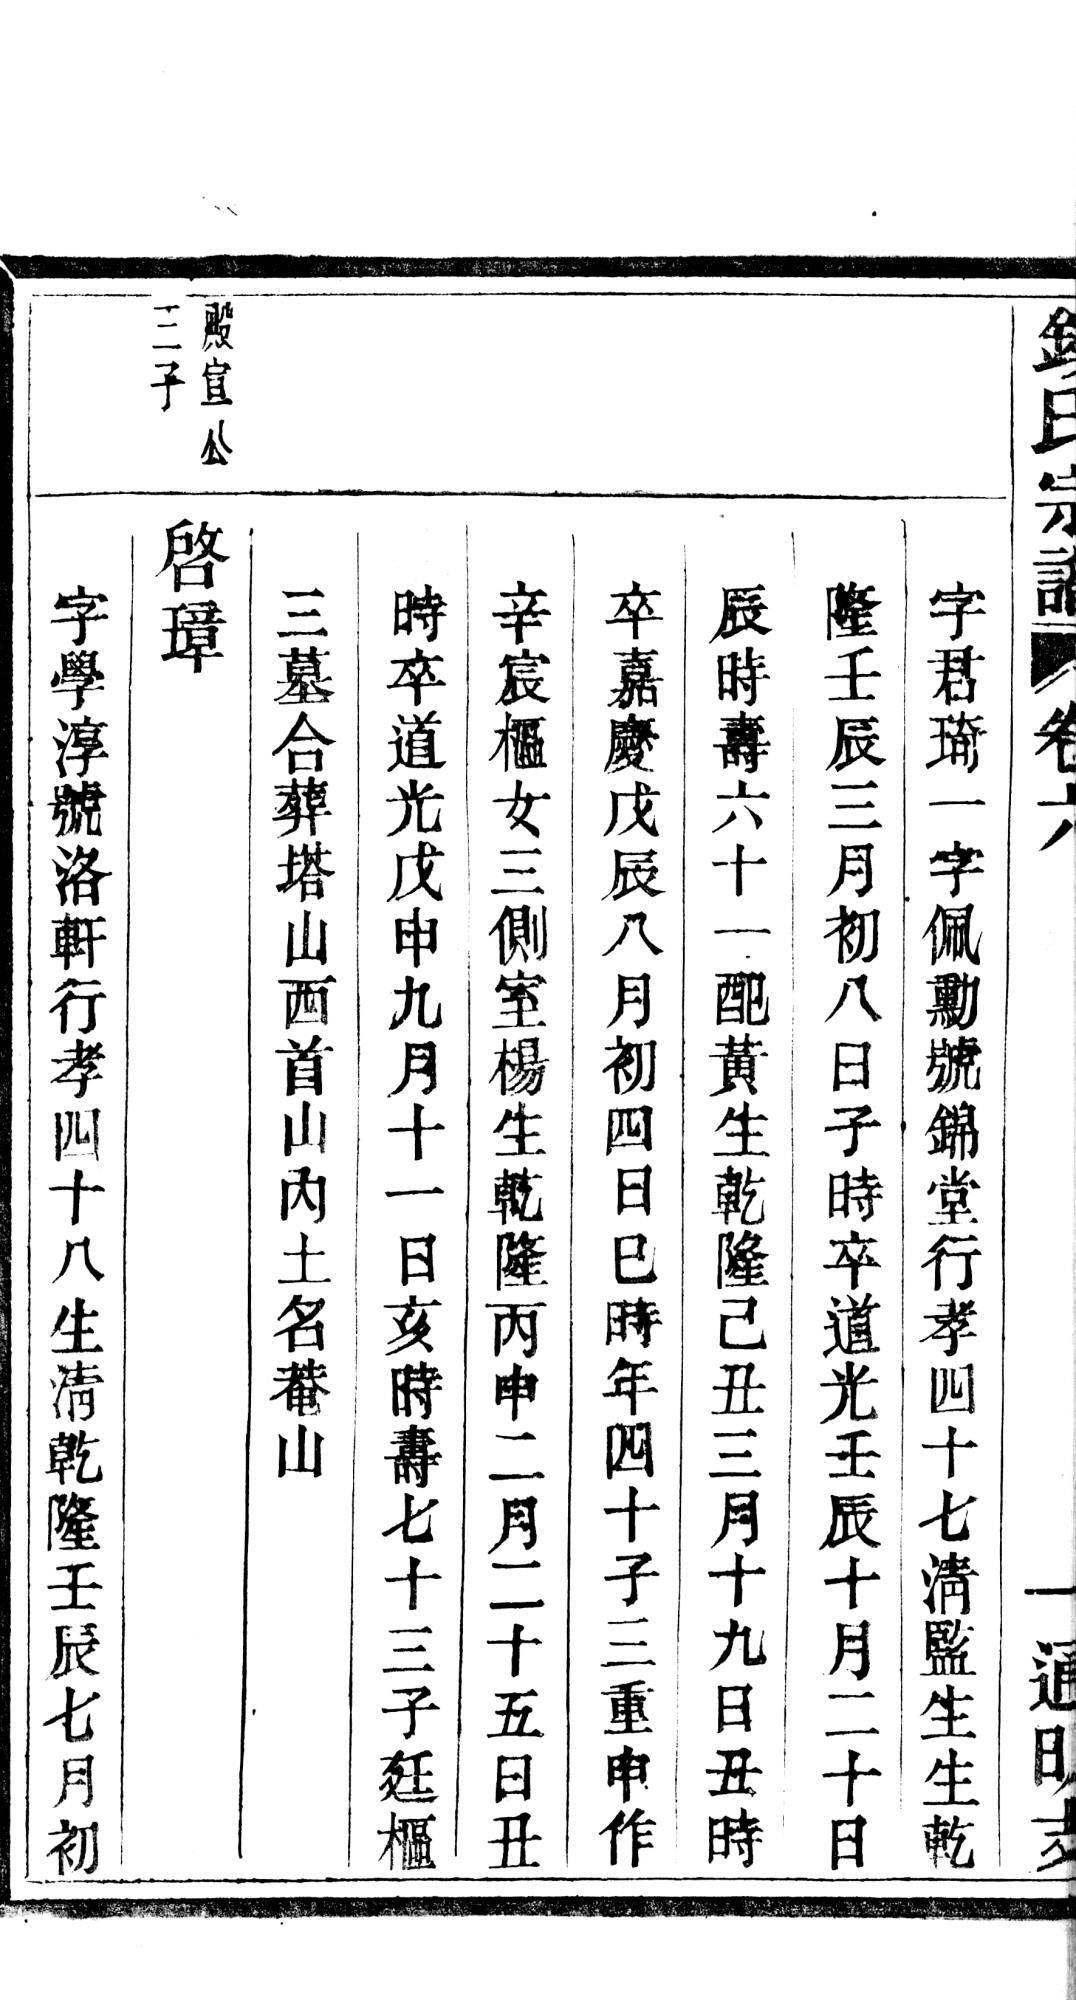 錢氏宗譜 卷六 一 通明支
字君琦一字佩勳號錦堂行孝四十七淸監生生乾
隆壬辰三月初八日子時卒道光壬辰十月二十日
辰時壽六十一配黃生乾隆己丑三月十九日丑時
卒嘉慶戊辰八月初四日巳時年四十子三重申作
辛宸樞女三側室楊生乾隆丙申二月二十五日丑
時卒道光戊申九月十一日亥時壽七十三子廷樞
三墓合葬塔山西首山內土名菴山
殿宣公
三子
啓璋
字學淳號洛軒行孝四十八生淸乾隆壬辰七月初